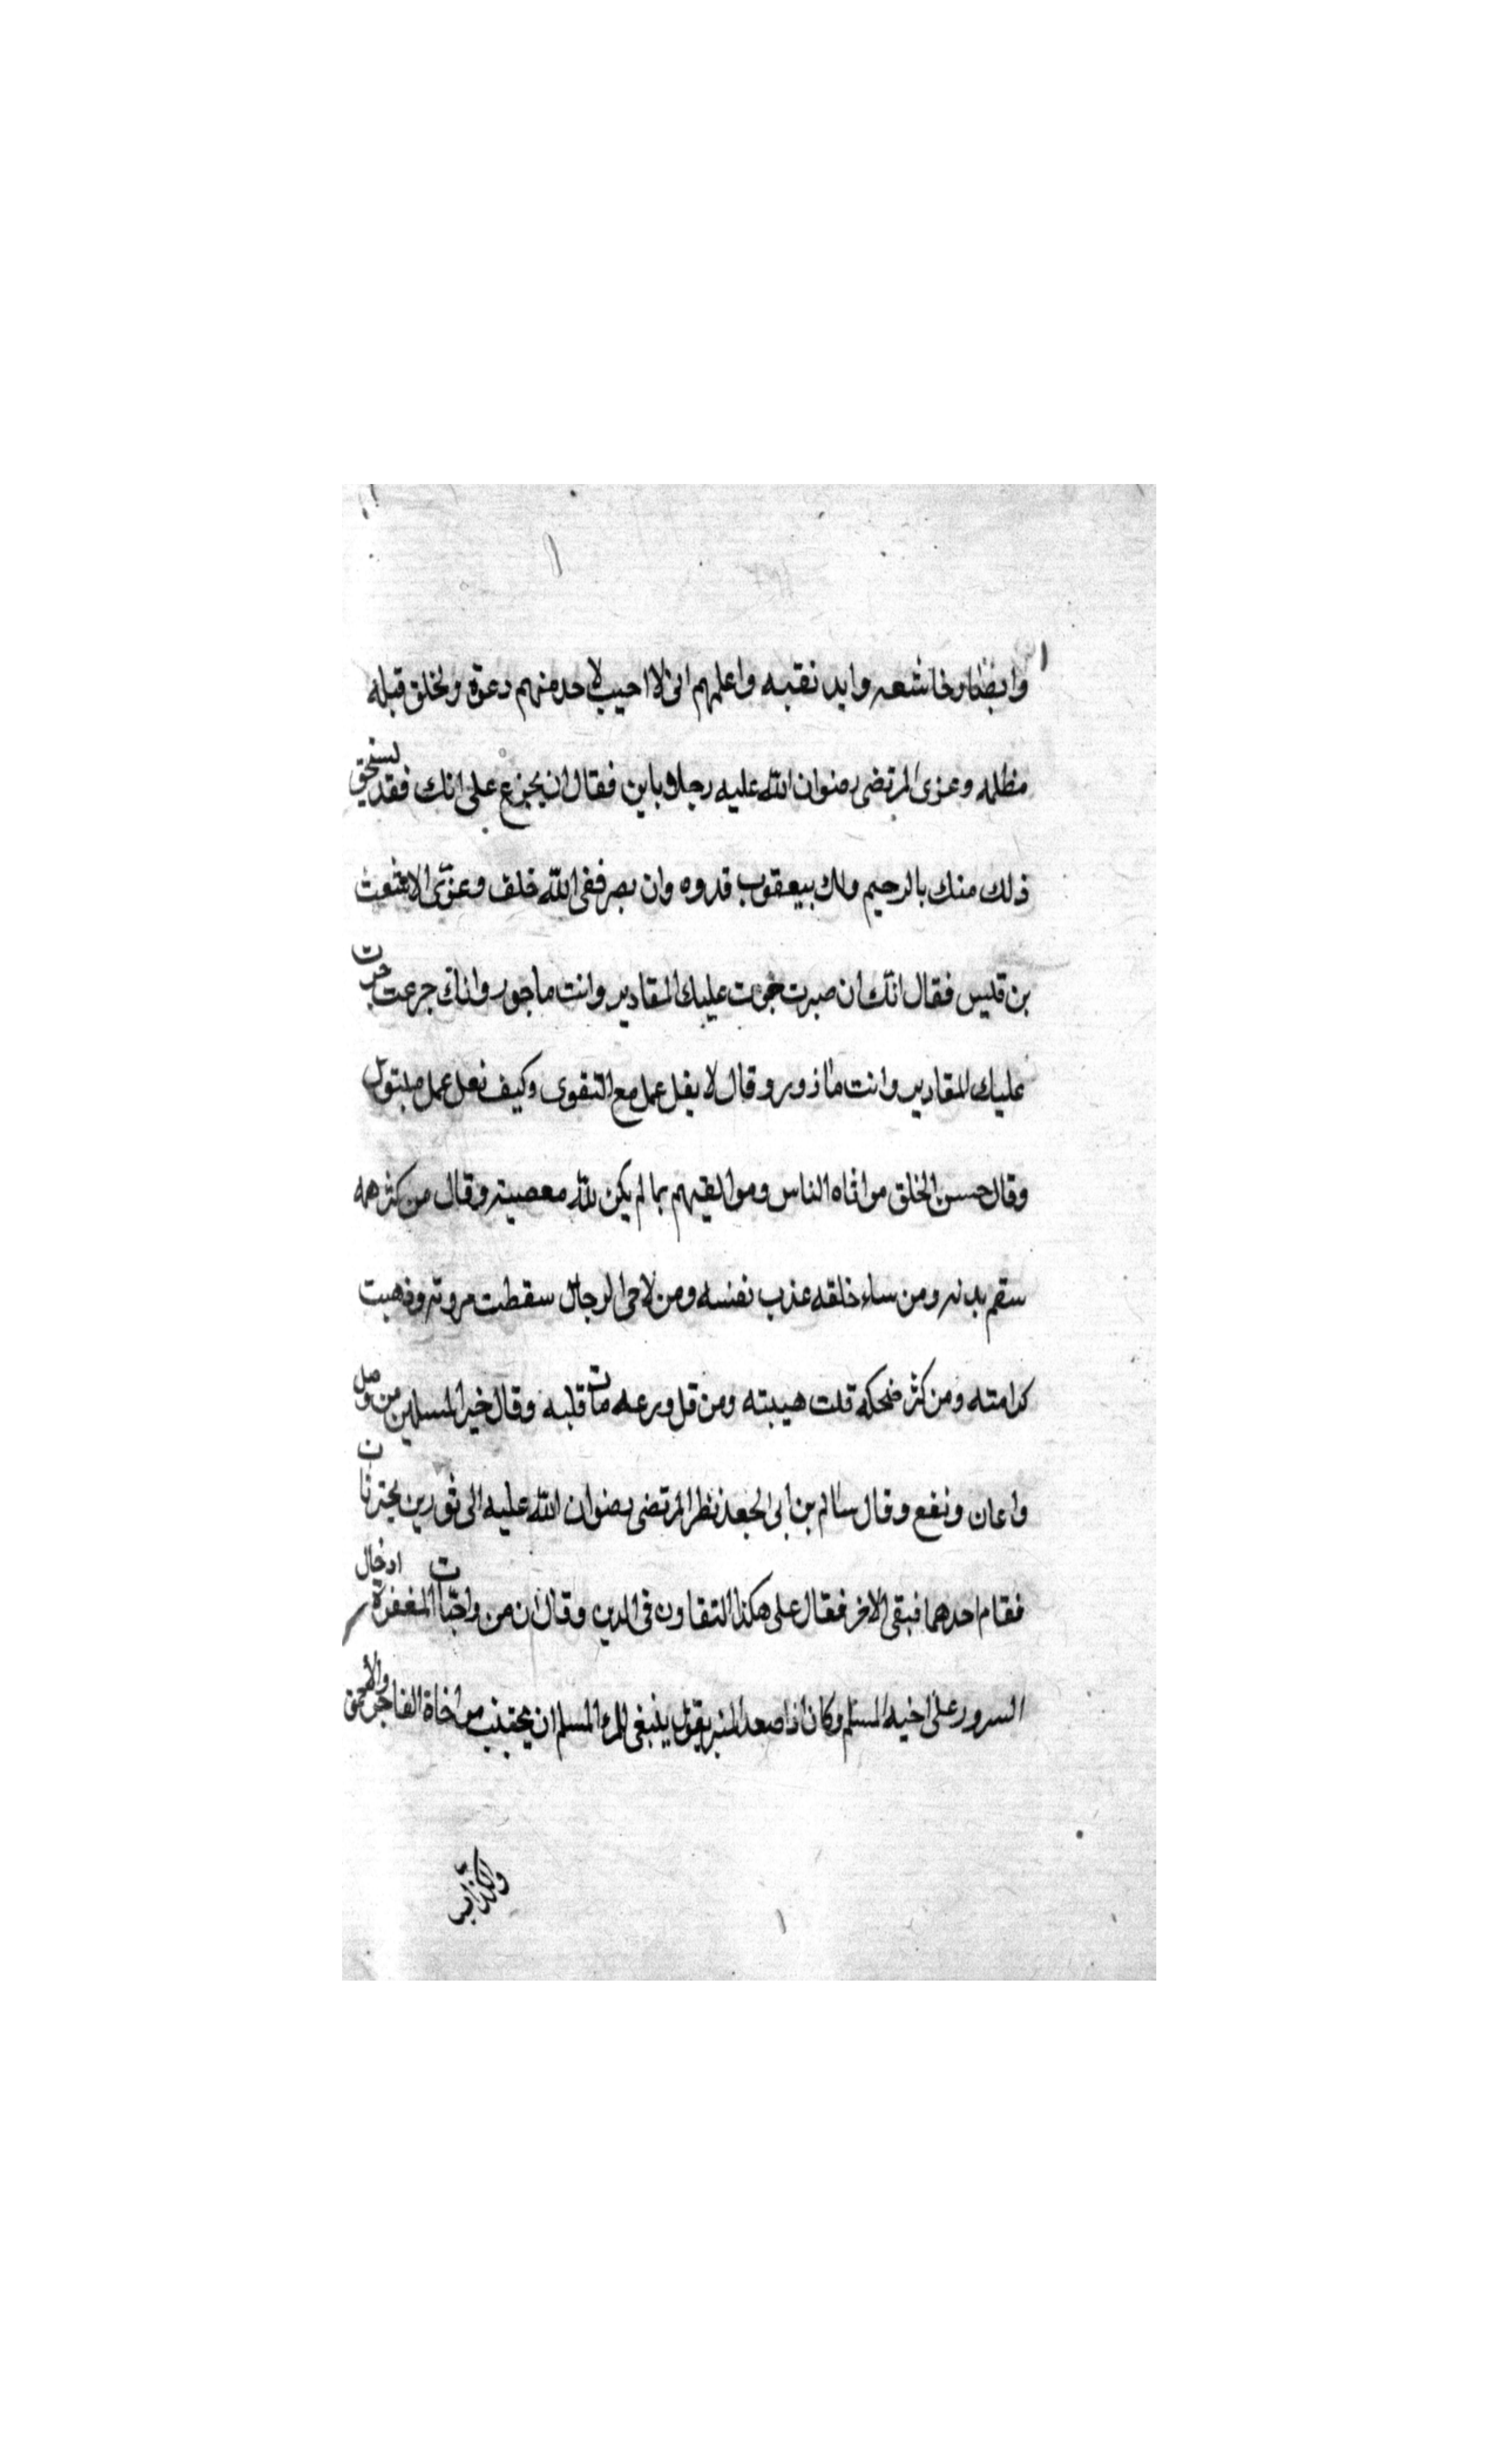 وابضا وخاشعه وايد نقبه واعلمهم انى لا احيب لاحد منهم دعوة ولخلق قبله
مظلمه وعزى المرتضى رضوان الله عليه رجلا باين فقال ان يجزع على انك فقد يستحق
ذلك منك بالرحيم ولك بيعقوب قدوه وان بصر ففى الله خلف وعزى الاشعث
بن قليس فقال انك ان صبرت جرت عليك المقادير وانت ماجور وانك جرعت جرت
عليك المقادير وانت مأذور وقال لا يقل عمل مع التقوى وكيف نعل عمل متبول
وقال حسن الخلق موافاه الناس وموالقيهم بما لم يكن لله معصيته وقال من كثر همه
سقم بدنه ومن ساء خلقه عذب نفسه ومن لاحى الرجال سقطت مروته وذهبت
كرامته ومن كثر ضحكه قلت هيبته ومن قل ورعه مات قلبه وقال خير المسلمين من وصل
واعان ونفع وقال سالم بن ابى الجعد نظر المرتضى رضوان الله عليه الى ثورين يحترثان
فقام احدهما فبقى الاخر فقال على هكذا التقاون فى الدين وقال ان من واجبات المغفرة ادخال
السرور على اخيه المسلم وكان اذا صعد المنبر يقول ينبغى للمرء المسلم ان يجتنب مواخاة الفاجر والأحمق
والكذاب